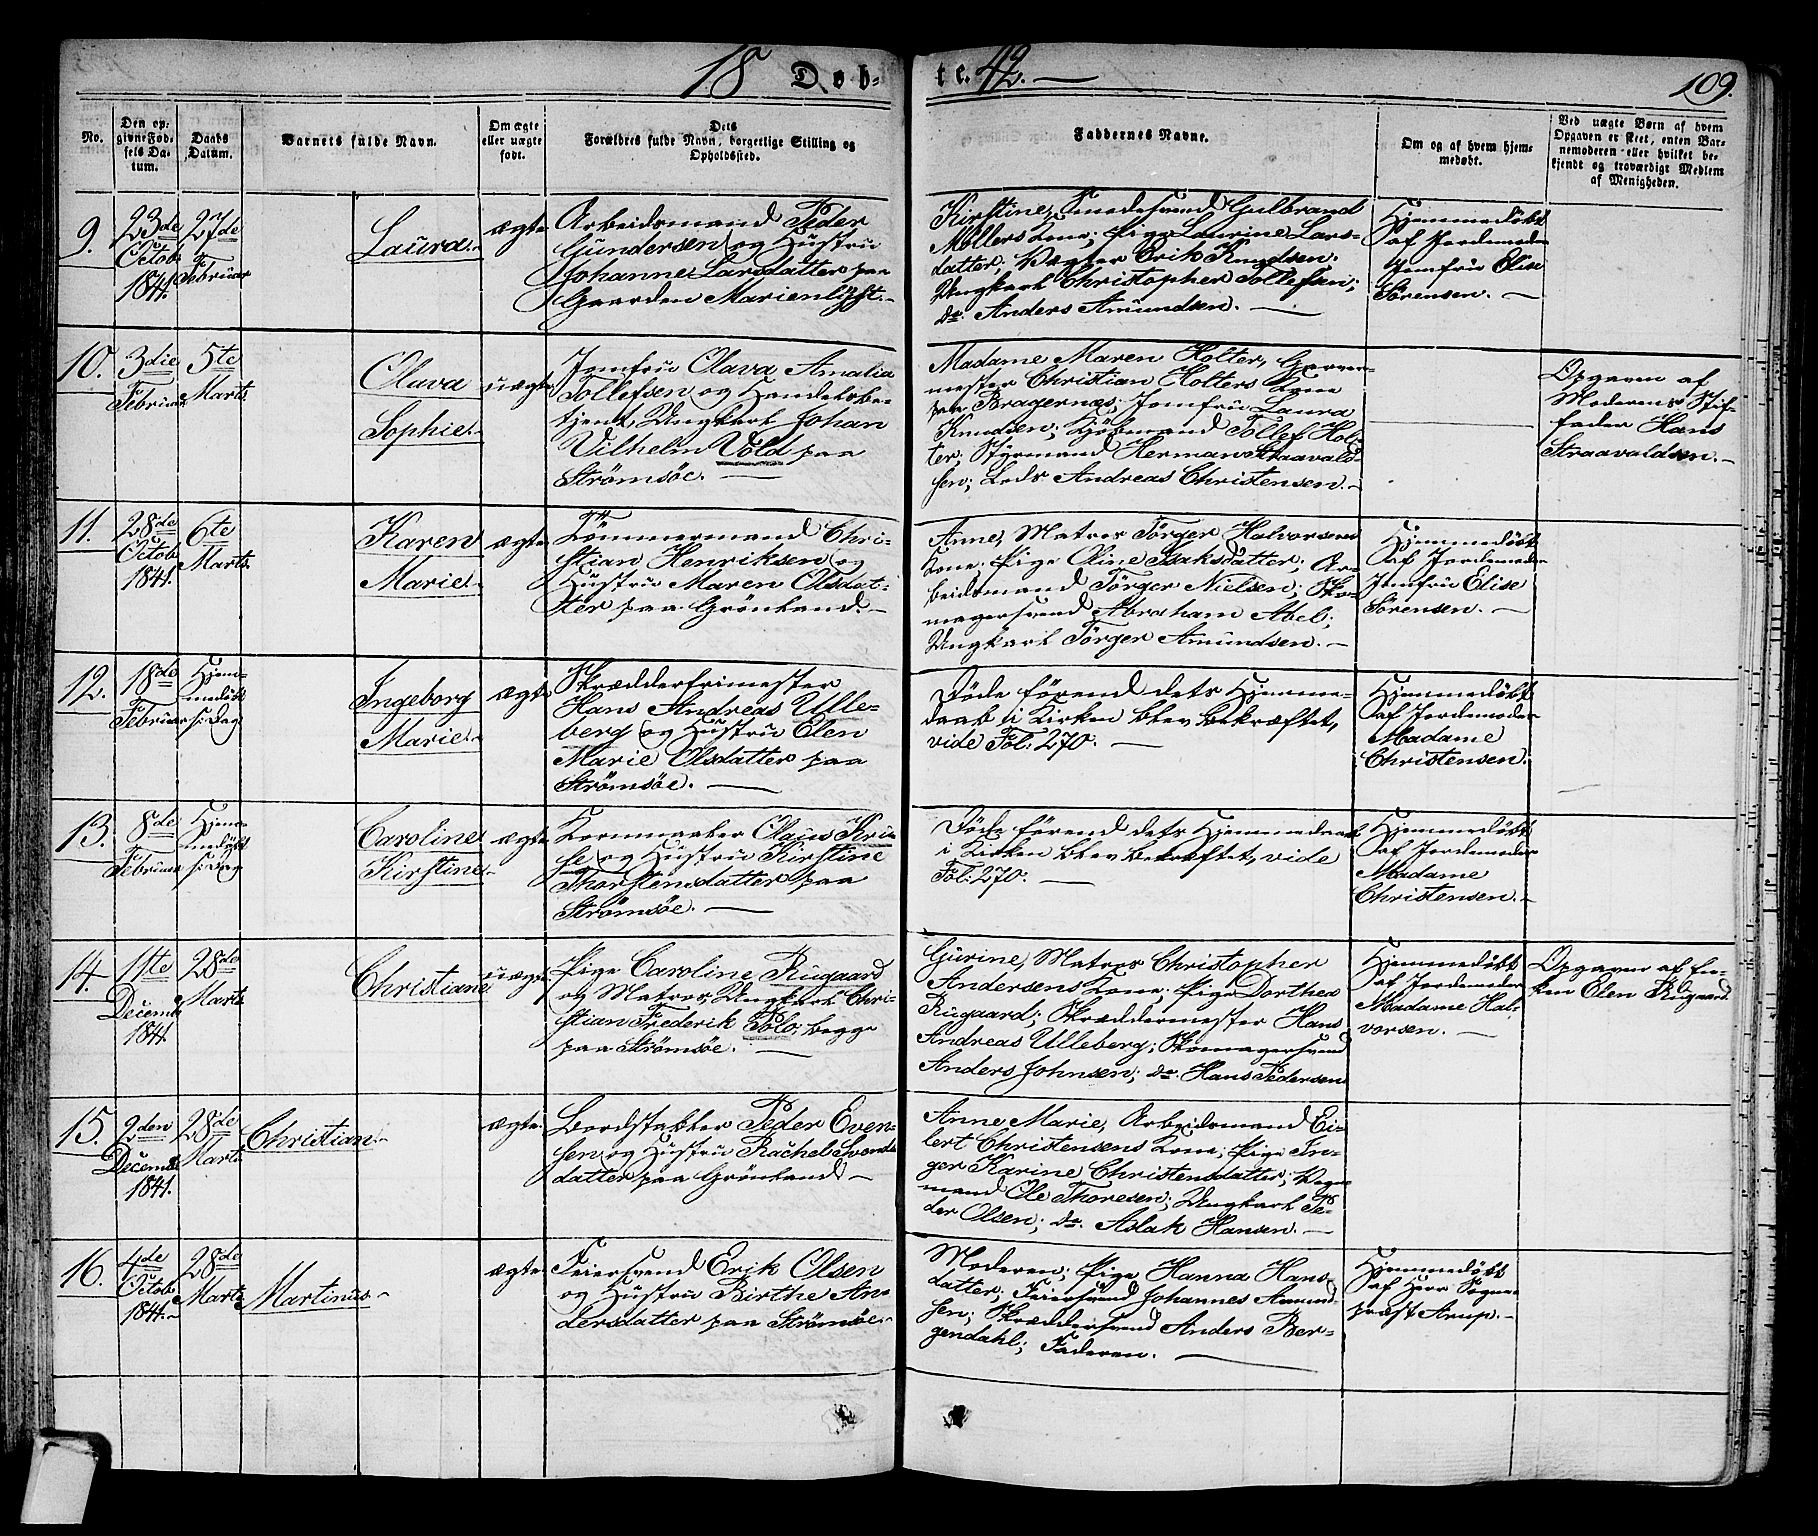 18 Döb-
te. 42.
109.
No.
Den op-
givne Fød-
sels Da-
tum.
Daabs
Datum.
Barnets fulde Navn.
Om ægte
eller uægte
født.
Dets
Forældres fulde Navn, borgerlige Stilling og
Opholdssted.
Faddernes Navne.
Om og af hvem hjem-
medøbt.
Ved uægte Børn af hvem
Opgaven er skeet, enten Bar-
nemoderen eller hvilket be-
kjendt og troværdigt Medlem
af Menigheden.
9.
23de
Octob
1841.
27de
Februar
Laura.
ægte
Arbeidsmand Peder
Gundersen og Hustru
Johanne Larsdatter paa
Gaarden Marienlyst.
Kirstine, Smedesvend Gulbrand
Møllers Kone; Pige Laurine Lars-
datter. Vægter Erik Knudsen.
Ungkarl Christopher Tollefsen;
do. Anders Amundsen.
Hjemmedöbt
af Jordemoder
Jomfru Elise
Sörensen.
10.
3die
Februar
5te
Marts
Olava
Sophie.
uægte
Jomfru Olava Amalia
Tollefsen og Handelsbe-
tjent, Ungkarl Johan
Vilhelm Vold paa
Strömsöe.
Madame Maren Holter, Garver-
mester Christian Holters Kone
paa Bragernæs; Jomfru Laura
Knudsen; Kjöbmand Tollef Hol-
ter; Styrmand Herman Straavald-
sen; Lods Andreas Christensen.
Opgaven af
Moderens Stif-
fader Hans
Straavaldsen.
11.
28de
Octob
1841.
6te
Marts.
Karen
Marie.
ægte
Tömmermand Chri-
stian Henriksen og
Hustru Maren Olsdat-
ter paa Grönland.
Anne, Matros Törger Halvorsens
Kone; Pige Oline Isaksdatter, Ar-
beidsmand Törger Nielsen; Sko-
magersvend Abraham Abel;
Ungkarl Törger Amundsen.
Hjemmedöbt
af Jordemoder
Jomfru Elise
Sörensen.
12.
18de
Februar
Hjem-
medöbt
s: Dag
Ingeborg
Marie.
ægte
Skrædderfrimester
Hans Andreas Ulle-
berg og Hustru Elen
Marie Olsdatter paa
Strömsöe.
Döde förend dets Hjemme-
daab i Kirken blev bekræftet,
vide Fol: 270.
Hjemmedöbt
af Jordemoder
Madame
Christensen.
13.
8de
Februar
Hjem-
medöbt
s: Dag
Caroline
Kirstine.
ægte
Kornmaaler Claus Kri-
se og Hustru Kirstine
Thorstensdatter paa
Strömsöe.
Döde förend dets Hjemmedaab
i Kirken blev bekræftet, vide
Fol: 270.
Hjemmedöbt
af Jordemoder
Madame
Christensen.
14.
11te
Decemb
1841.
28de
Marts
Christiane
uægte
Pige Caroline Rugaard
og Matros, Ungkarl Chri-
stian Frederik Polo, begge
paa Strömsöe.
Gurine, Matros Christopher
Andersens Kone; Pige Dorthea
Rugaard; Skræddermester Hans
Andreas Ulleberg; Skomagersvend
Anders Johnsen; do. Hans Pedersen
Hjemmedöbt
af Jordemoder
Madame Hal-
vorsen.
Opgaven af En-
ken Elen Rugaard.
15.
2den
Decemb
1841.
28de
Marts
Christian.
ægte
Bordstabler Peder Even-
sen og Hustru Rachel Svends-
datter paa Grönland.
Anne Marie, Arbeidsmand Ei-
lert Christensens Kone; Pige In-
ger Karine Christensdatter; Vogn-
mand Ole Thoresen; Ungkarl Pe-
der Olsen; do. Aslak Hansen.
16.
4de
Octob
1841.
28de
Marts
Martinus.
ægte
Feiersvend Erik Olsen
og Hustru Birthe An-
dersdatter paa Strömsöe.
Moderen; Pige Hanna Hans-
datter; Feiersvend Johannes Amund-
sen; Skræddersvend Anders Ber-
gendahl; Faderen.
Hjemmedöbt
af Herr Sogne-
præst Arup.